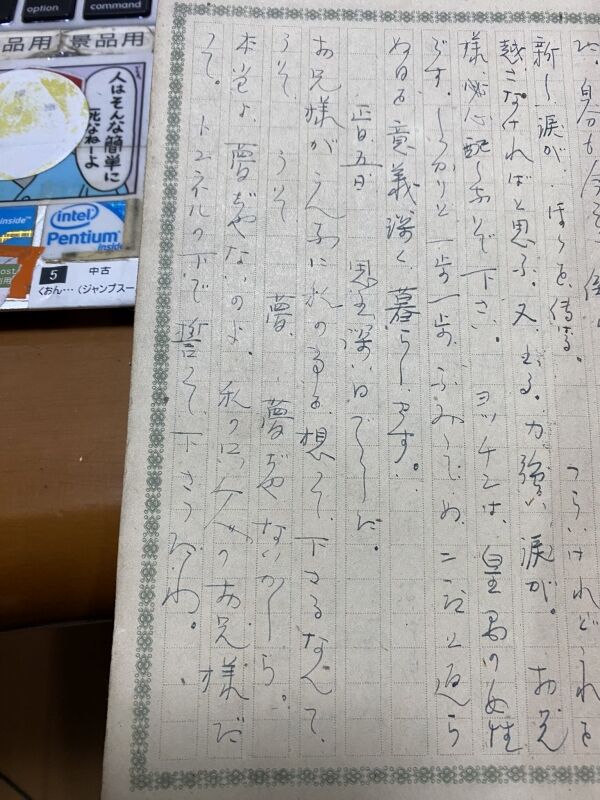 新しい涙が、ほゝを傳はる。つらいけれどこれを
越こなければと思ふ。又、出る。力強い涙が。お兄
様、御心配しないで下さい。ヨッチンは、皇国の女性
です。しっかりと一歩一歩ふみしめ、二度と返ら
ぬ日を意義深く暮らします。
正月五日 思出深い日でした。
お兄様がこんなに私の事を想って下さるなんて、
うそ、うそ、夢、夢ぢやないかしら。
本当よ、夢ぢやないのよ。私の
お兄様だ
って。トンネルの下で誓って下さつたわ。
option
command
品用
景品用
人はそんな簡単に
死なねーよ
inside™
intel
Pentium
inside
5 中古
くおん…(ジャンプスー